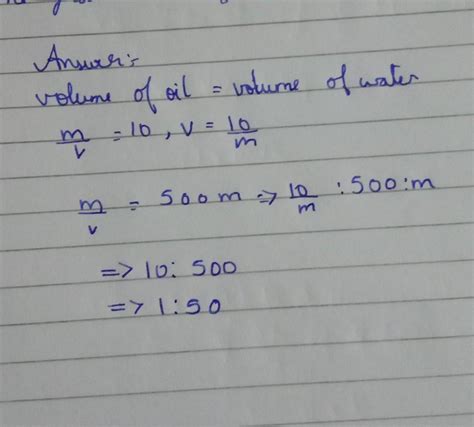 Answer:-
volume of oil = volume of water
m/v = 10, v = 10/m
m/v = 500m => 10/m : 500:m
=> 10: 500
=> 1:50